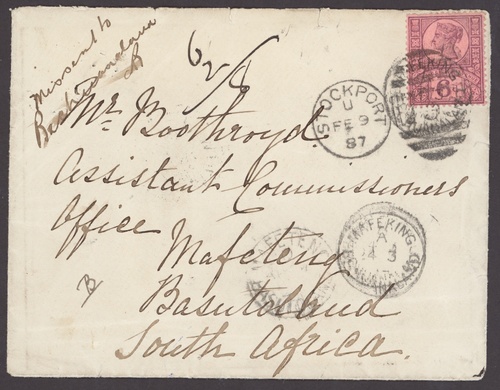 Missent to
Bechuanaland
6 2/8
STOCKPORT
U
FE 9
87
MAFEKING
Mr. Boothroyd.
Assistant Commissioners
Office
Mafeteng
Basutoland
South Africa.
MAFEKING
A
24 3
B